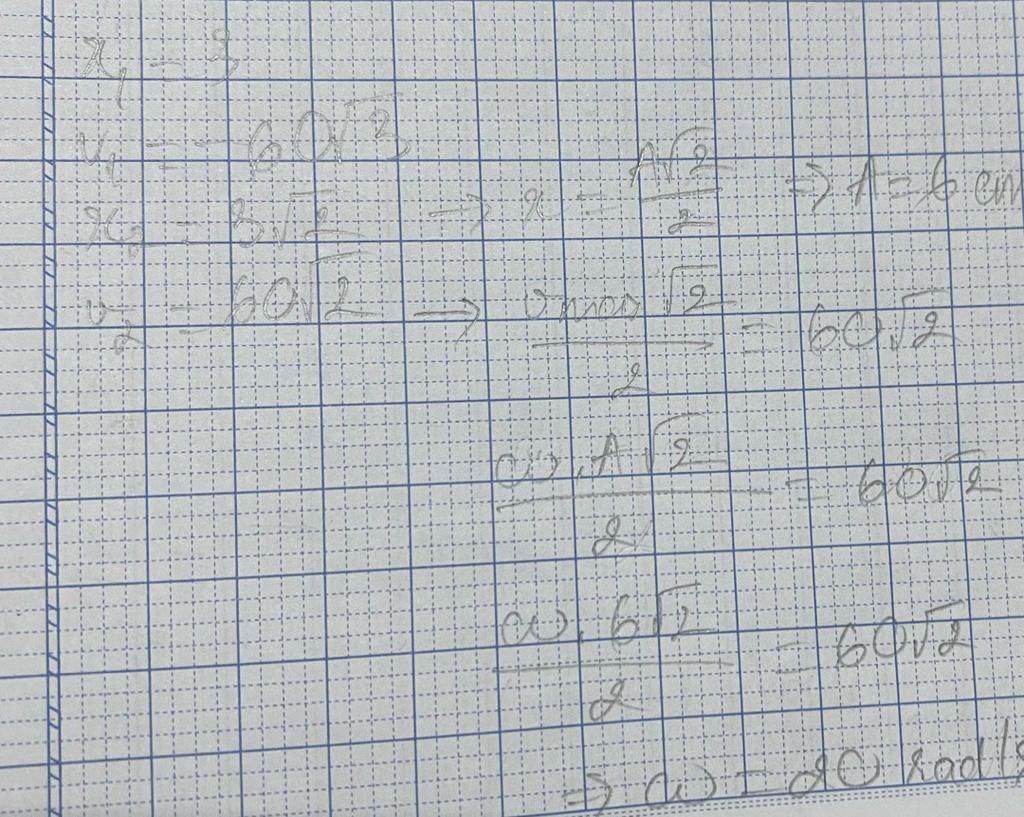 x₁ = 3
v₁ = -60√3
x₂ = 3√2 → x = A√2/2 ⇒ A = 6 cm
v₂ = 60√2 → vmax√2/2 = 60√2
ω.A√2/2 = 60√2
ω.6√2/2 = 60√2
⇒ ω = 20 rad/s